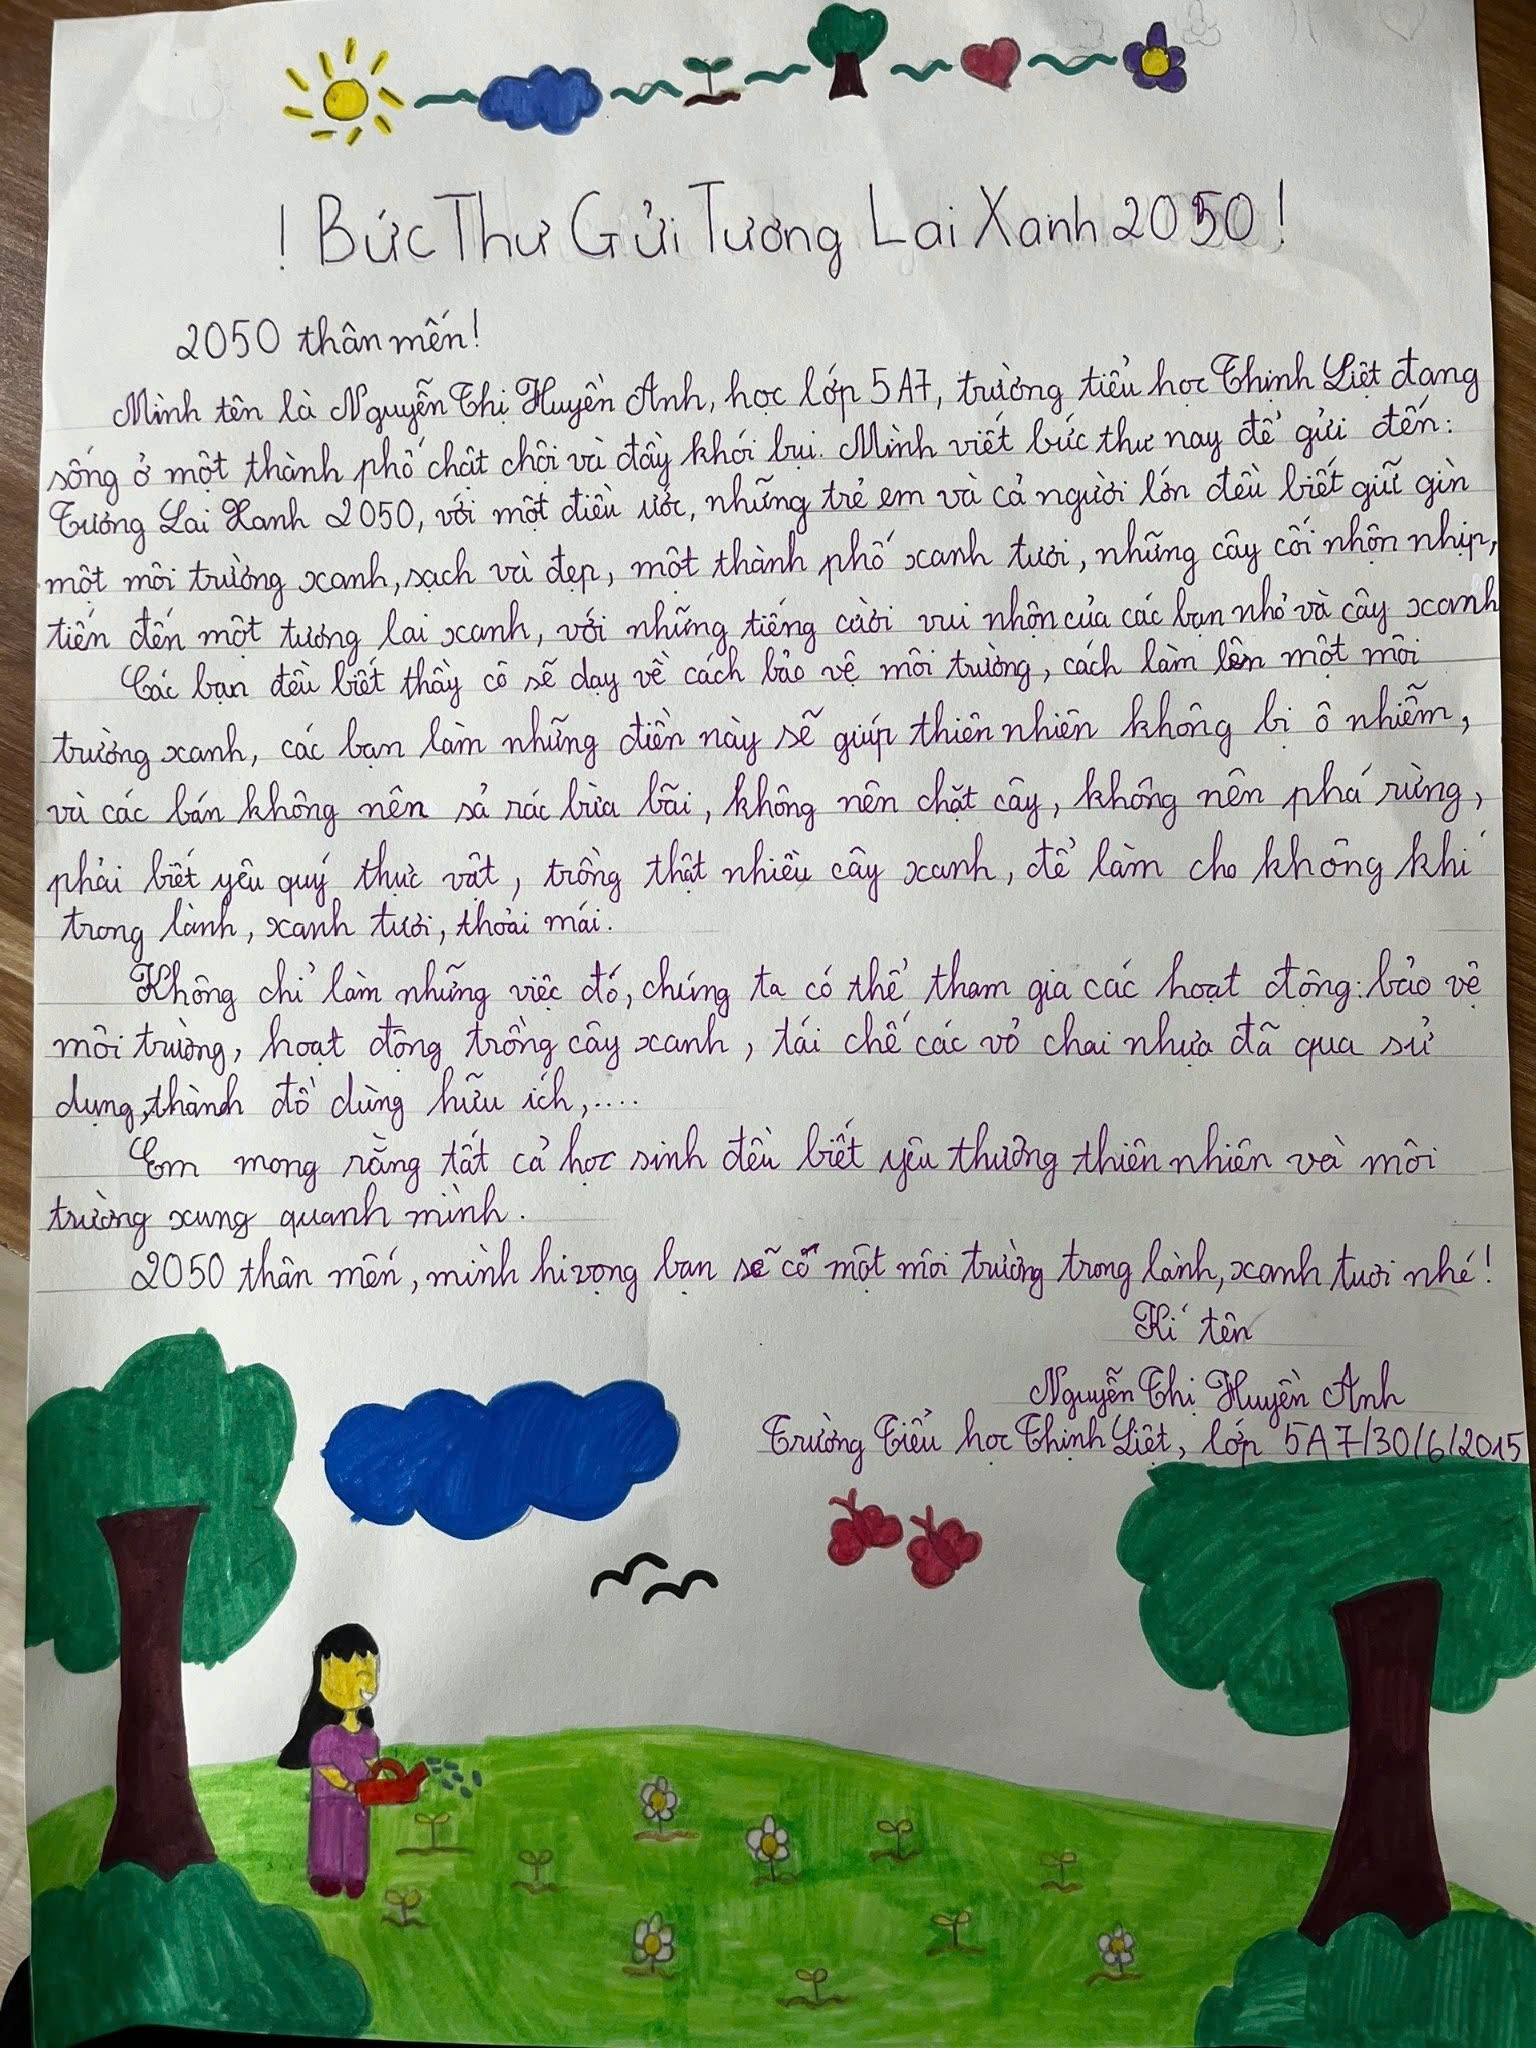 ! Bức Thư Gửi Tương Lai Xanh 2050 !
2050 thân mến!
Mình tên là Nguyễn Thị Huyền Anh, học lớp 5A7, trường tiểu học Thịnh Liệt đang
sống ở một thành phố chật chội và đầy khói bụi. Mình viết bức thư nay để gửi đến:
Tương Lai Xanh 2050, với một điều ước, những trẻ em và cả người lớn đều biết giữ gìn
một môi trường xanh, sạch và đẹp, một thành phố xanh tươi, những cây cối nhộn nhịp,
tiến đến một tương lai xanh, với những tiếng cười vui nhộn của các bạn nhỏ và cây xanh
Các bạn đều biết thầy cô sẽ dạy về cách bảo vệ môi trường, cách làm lên một môi
trường xanh, các bạn làm những điền này sẽ giúp thiên nhiên không bị ô nhiễm,
và các bán không nên sả rác bừa bãi, không nên chặt cây, không nên phá rừng,
phải biết yêu quý thực vật, trồng thật nhiều cây xanh, để làm cho không khí
trong lành, xanh tươi, thoải mái.
Không chỉ làm những việc đó, chúng ta có thể tham gia các hoạt động: bảo vệ
môi trường, hoạt động trồng cây xanh, tái chế các vỏ chai nhựa đã qua sử
dụng, thành đồ dùng hữu ích,....
Em mong rằng tất cả học sinh đều biết yêu thương thiên nhiên và môi
trường xung quanh mình.
2050 thân mến, mình hi vọng bạn sẽ có một môi trường trong lành, xanh tươi nhé!
Kí tên
Nguyễn Thị Huyền Anh
Trường Tiểu học Thịnh Liệt, lớp 5A7/30/6/2015